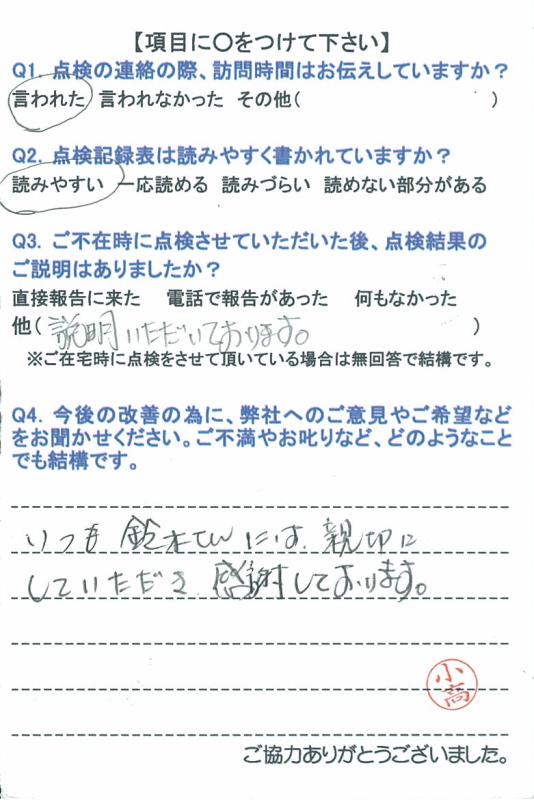 【項目に○をつけて下さい】
Q1. 点検の連絡の際、訪問時間はお伝えしていますか？
言われた 言われなかった その他(　　　)
Q2. 点検記録表は読みやすく書かれていますか？
読みやすい 一応読める 読みづらい 読めない部分がある
Q3. ご不在時に点検させていただいた後、点検結果の
ご説明はありましたか？
直接報告に来た 電話で報告があった 何もなかった
他(説明いただいております。)
※ご在宅時に点検をさせて頂いている場合は無回答で結構です。
Q4. 今後の改善の為に、弊社へのご意見やご希望など
をお聞かせください。ご不満やお叱りなど、どのようなこと
でも結構です。
いつも鈴木さんには、親切に
していただき、感謝しております。
小高
ご協力ありがとうございました。